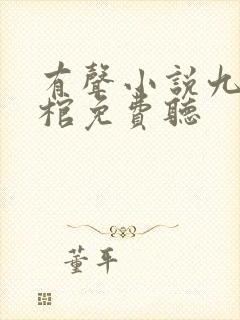 有聲小説九
棺免費聽
董平